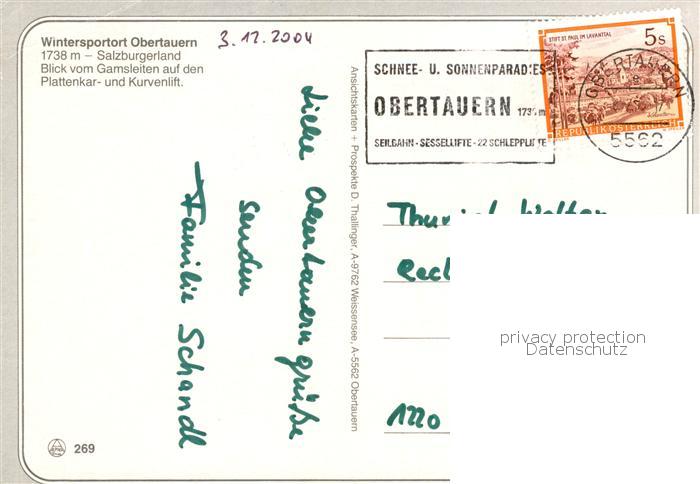 Wintersportort Obertauern
1738 m – Salzburgerland
Blick vom Gamsleiten auf den
Plattenkar- und Kurvenlift.
3.12.2004
SCHNEE- U. SONNENPARADIES
OBERTAUERN 1738 m
SEILBAHN-SESSELLIFTE-22 SCHLEPPLIFTE
STIFT ST. PAUL IM LAVANTTAL
5s
REPUBLIK ÖSTERREICH
OBERTAUERN
5562
Liebe Obertauerngrüße
senden
Familie Schandl
Ansichtskarten + Prospekte D. Thallinger, A-9762 Weissensee, A-5562 Obertauern
Walter
1220
privacy protection
Datenschutz
269